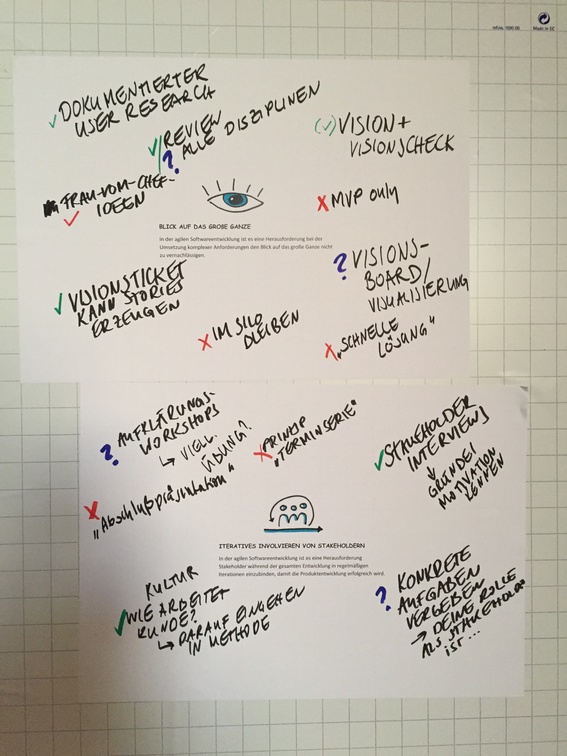 Made in EC
✓ DOKUMENTIERTER
USER RESEARCH
✓/? REVIEW
ALLE DISZIPLINEN
(✓) VISION +
VISIONSCHECK
FRAU-VOM-CHEF-
IDEEN
✓
x MVP only
BLICK AUF DAS GROßE GANZE
In der agilen Softwareentwicklung ist es eine Herausforderung bei der
Umsetzung komplexer Anforderungen den Blick auf das große Ganze nicht
zu vernachlässigen.
? VISIONS-
BOARD/
VISUALISIERUNG
✓ VISIONSTICKET
KANN STORIES
ERZEUGEN
x IM SILO
BLEIBEN
x "SCHNELLE
LÖSUNG"
? AUFKLÄRUNGS-
WORKSHOPS
↳ VIELL.
ÜBUNG?
x PRINZIP
"TERMINSERIE"
✓ STAKEHOLDER
INTERVIEWS
↓
GRÜNDE/
MOTIVATION
KENNEN
x "Abschlußpräsentation"
ITERATIVES INVOLVIEREN VON STAKEHOLDERN
In der agilen Softwareentwicklung ist es eine Herausforderung
Stakeholder während der gesamten Entwicklung in regelmäßigen
Iterationen einzubinden, damit die Produktentwicklung erfolgreich wird.
KULTUR
✓ WIE ARBEITET
KUNDE?
↳ DARAUF EINGEHEN
IN METHODE
? KONKRETE
AUFGABEN
VERGEBEN
→ DEINE ROLLE
ALS STAKEHOLDER
IST ...